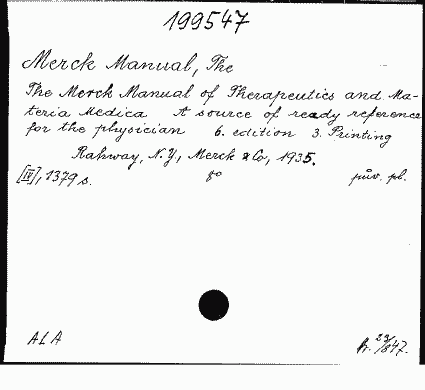 199547
Merck Manual, The
The Merck Manual of Therapeutics and Ma-
teria Medica A source of ready reference
for the physician 6. edition 3. Printing
Rahway, N.Y., Merck & Co, 1935.
[IV], 1379 s. fo pův. pl.
ALA
29/847.